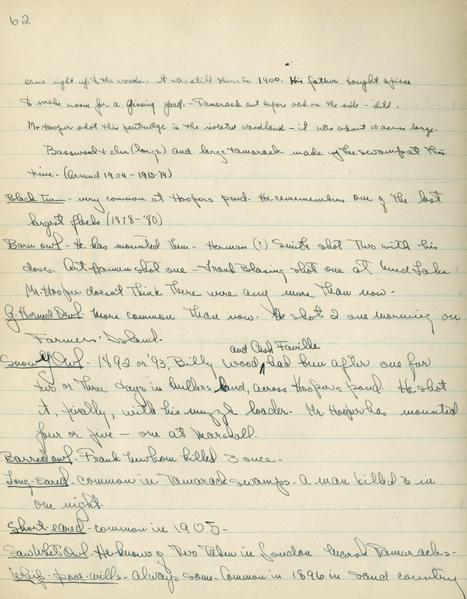 62
came right up to the woods. It was still there in 1900. His father bought a piece
to make room for a ginseng yard. - Tamarack cut before oak on the side - hill.
Mr Hooper shot this partridge in the isolated woodland - it was about 10 acres large.
Basswood & elm (large) and large tamarack made up the swamp at this
time - (Around 1904 - 1913-14)
Black Tern - very common at Hoopers pond. He remembers one of the last
largest flocks (1878-'80)
Barn owl - He has mounted them - Herman (?) Smith shot two with his
doves. Art shot one - Frank Blasing shot one at Mud Lake
Mr. Hooper doesn't think there were any more than now -
G. Horned Owl - more common than now. He shot 2 one morning on
Farmers' Island.
and Cash Faville
Snowy Owl - 1892 or '93, Billy Wood, had been after one for
two or three days in Millers land, across Hoopers pond. He shot
it, finally, with his muzzle loader. Mr Hooper has mounted
four or five - one at Marshall.
Barred owl - Frank Newham killed 3 once -
Long-eared - common in Tamarack swamps. A man killed 3 in
one night.
Short-eared - common in 1905 -
Saw Whet Owl - He knows of two taken in London Marsh Tamaracks -
Whip-poor-wills - always some. Common in 1896 in sand country